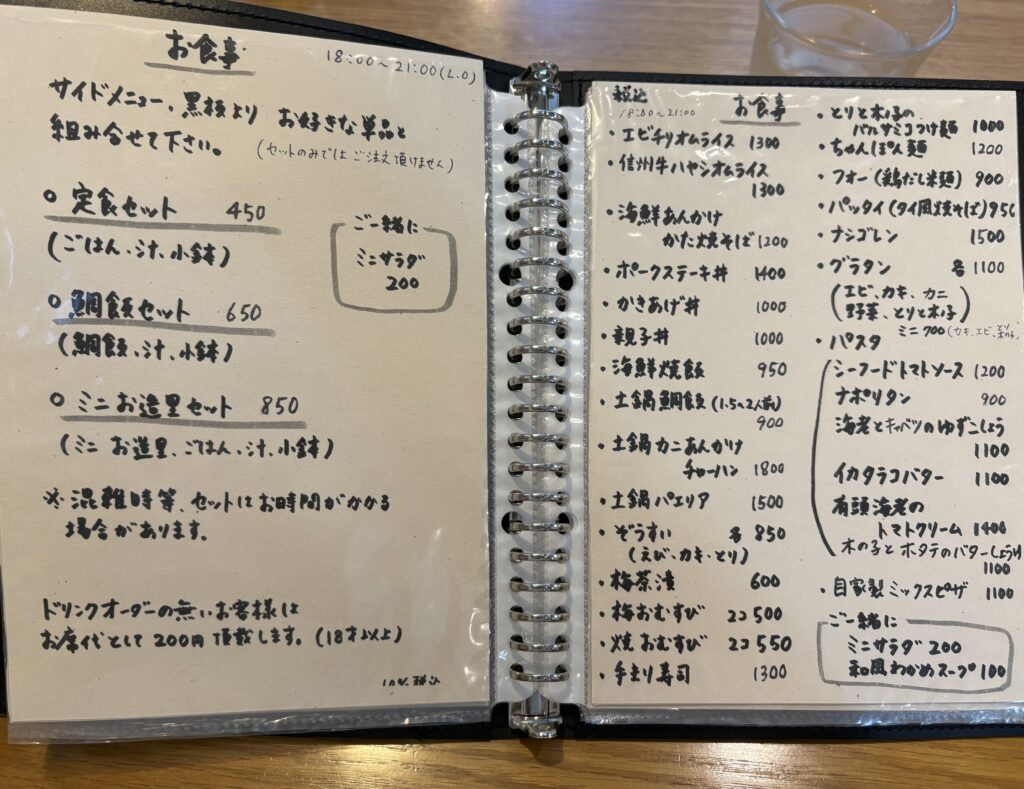 お食事
18:00～21:00(L.O)
サイドメニュー、黒板より お好きな単品と
組み合せて下さい。
(セットのみではご注文頂けません)
○ 定食セット 450
(ごはん、汁、小鉢)
ご一緒に
ミニサラダ
200
○ 鯛飯セット 650
(鯛飯、汁、小鉢)
○ ミニお造里セット 850
(ミニお造里、ごはん、汁、小鉢)
※ 混雑時等、セットはお時間がかかる
場合があります。
ドリンクオーダーの無いお客様は
お席代として200円頂戴します。(18才以上)
10%税込
税込
18:00～21:00
お食事
・エビチリオムライス 1300
・信州牛ハヤシオムライス
1300
・海鮮あんかけ
かた焼そば 1200
・ポークステーキ丼 1400
・かきあげ丼 1000
・親子丼 1000
・海鮮焼飯 950
・土鍋鯛飯 (1.5～2人前)
900
・土鍋カニあんかけ
チャーハン 1800
・土鍋パエリア 1500
・ぞうすい 各 850
(えび、カキ、とり)
・梅茶漬 600
・梅おむすび 2コ 500
・焼おむすび 2コ 550
・手まり寿司 1300
・とりと木の子の
バルサミコつけ麺 1000
・ちゃんぽん麺 1200
・フォー(鶏だし米麺) 900
・パッタイ(タイ風焼そば) 950
・ナシゴレン 1500
・グラタン 各 1100
(エビ、カキ、カニ
野菜、とりと木の子)
ミニ 700 (カキ、エビ、とり木の子)
・パスタ
シーフードトマトソース 1200
ナポリタン 900
海老とキャベツのゆずこしょう
1100
イカタラコバター 1100
有頭海老の
トマトクリーム 1400
木の子とホタテのバターしょうゆ
1100
・自家製ミックスピザ 1100
ご一緒に
ミニサラダ 200
和風わかめスープ 100